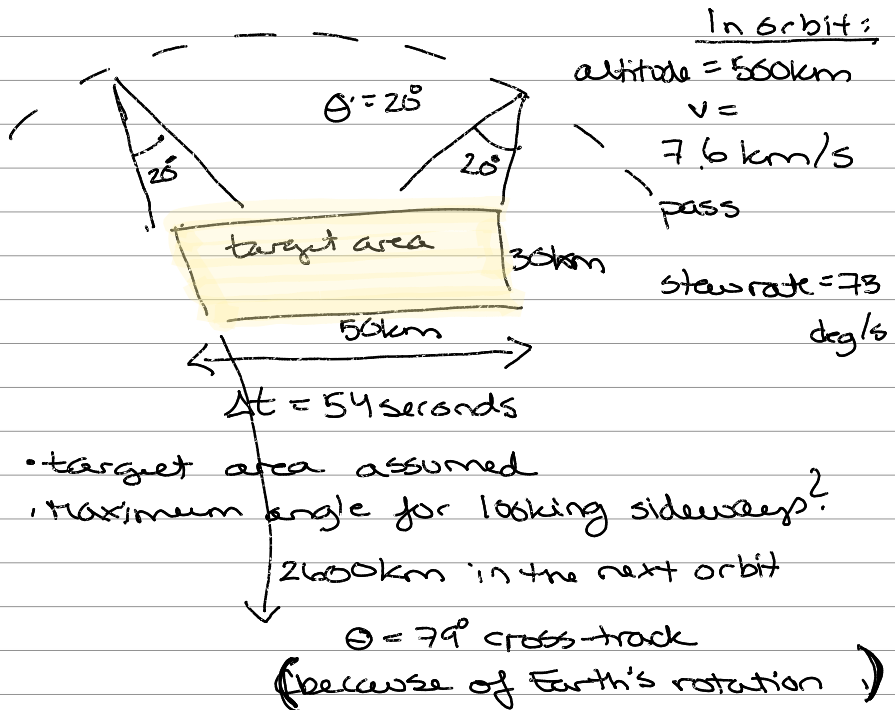 In orbit:
altitude = 500km
θ' = 20°
v =
7.6 km/s
20°
20°
pass
target area
30km
slewrate = 73
deg/s
50km
Δt = 54 seconds
• target area assumed
• Maximum angle for looking sideways?
2600km in the next orbit
θ = 79° cross-track
(because of Earth's rotation)